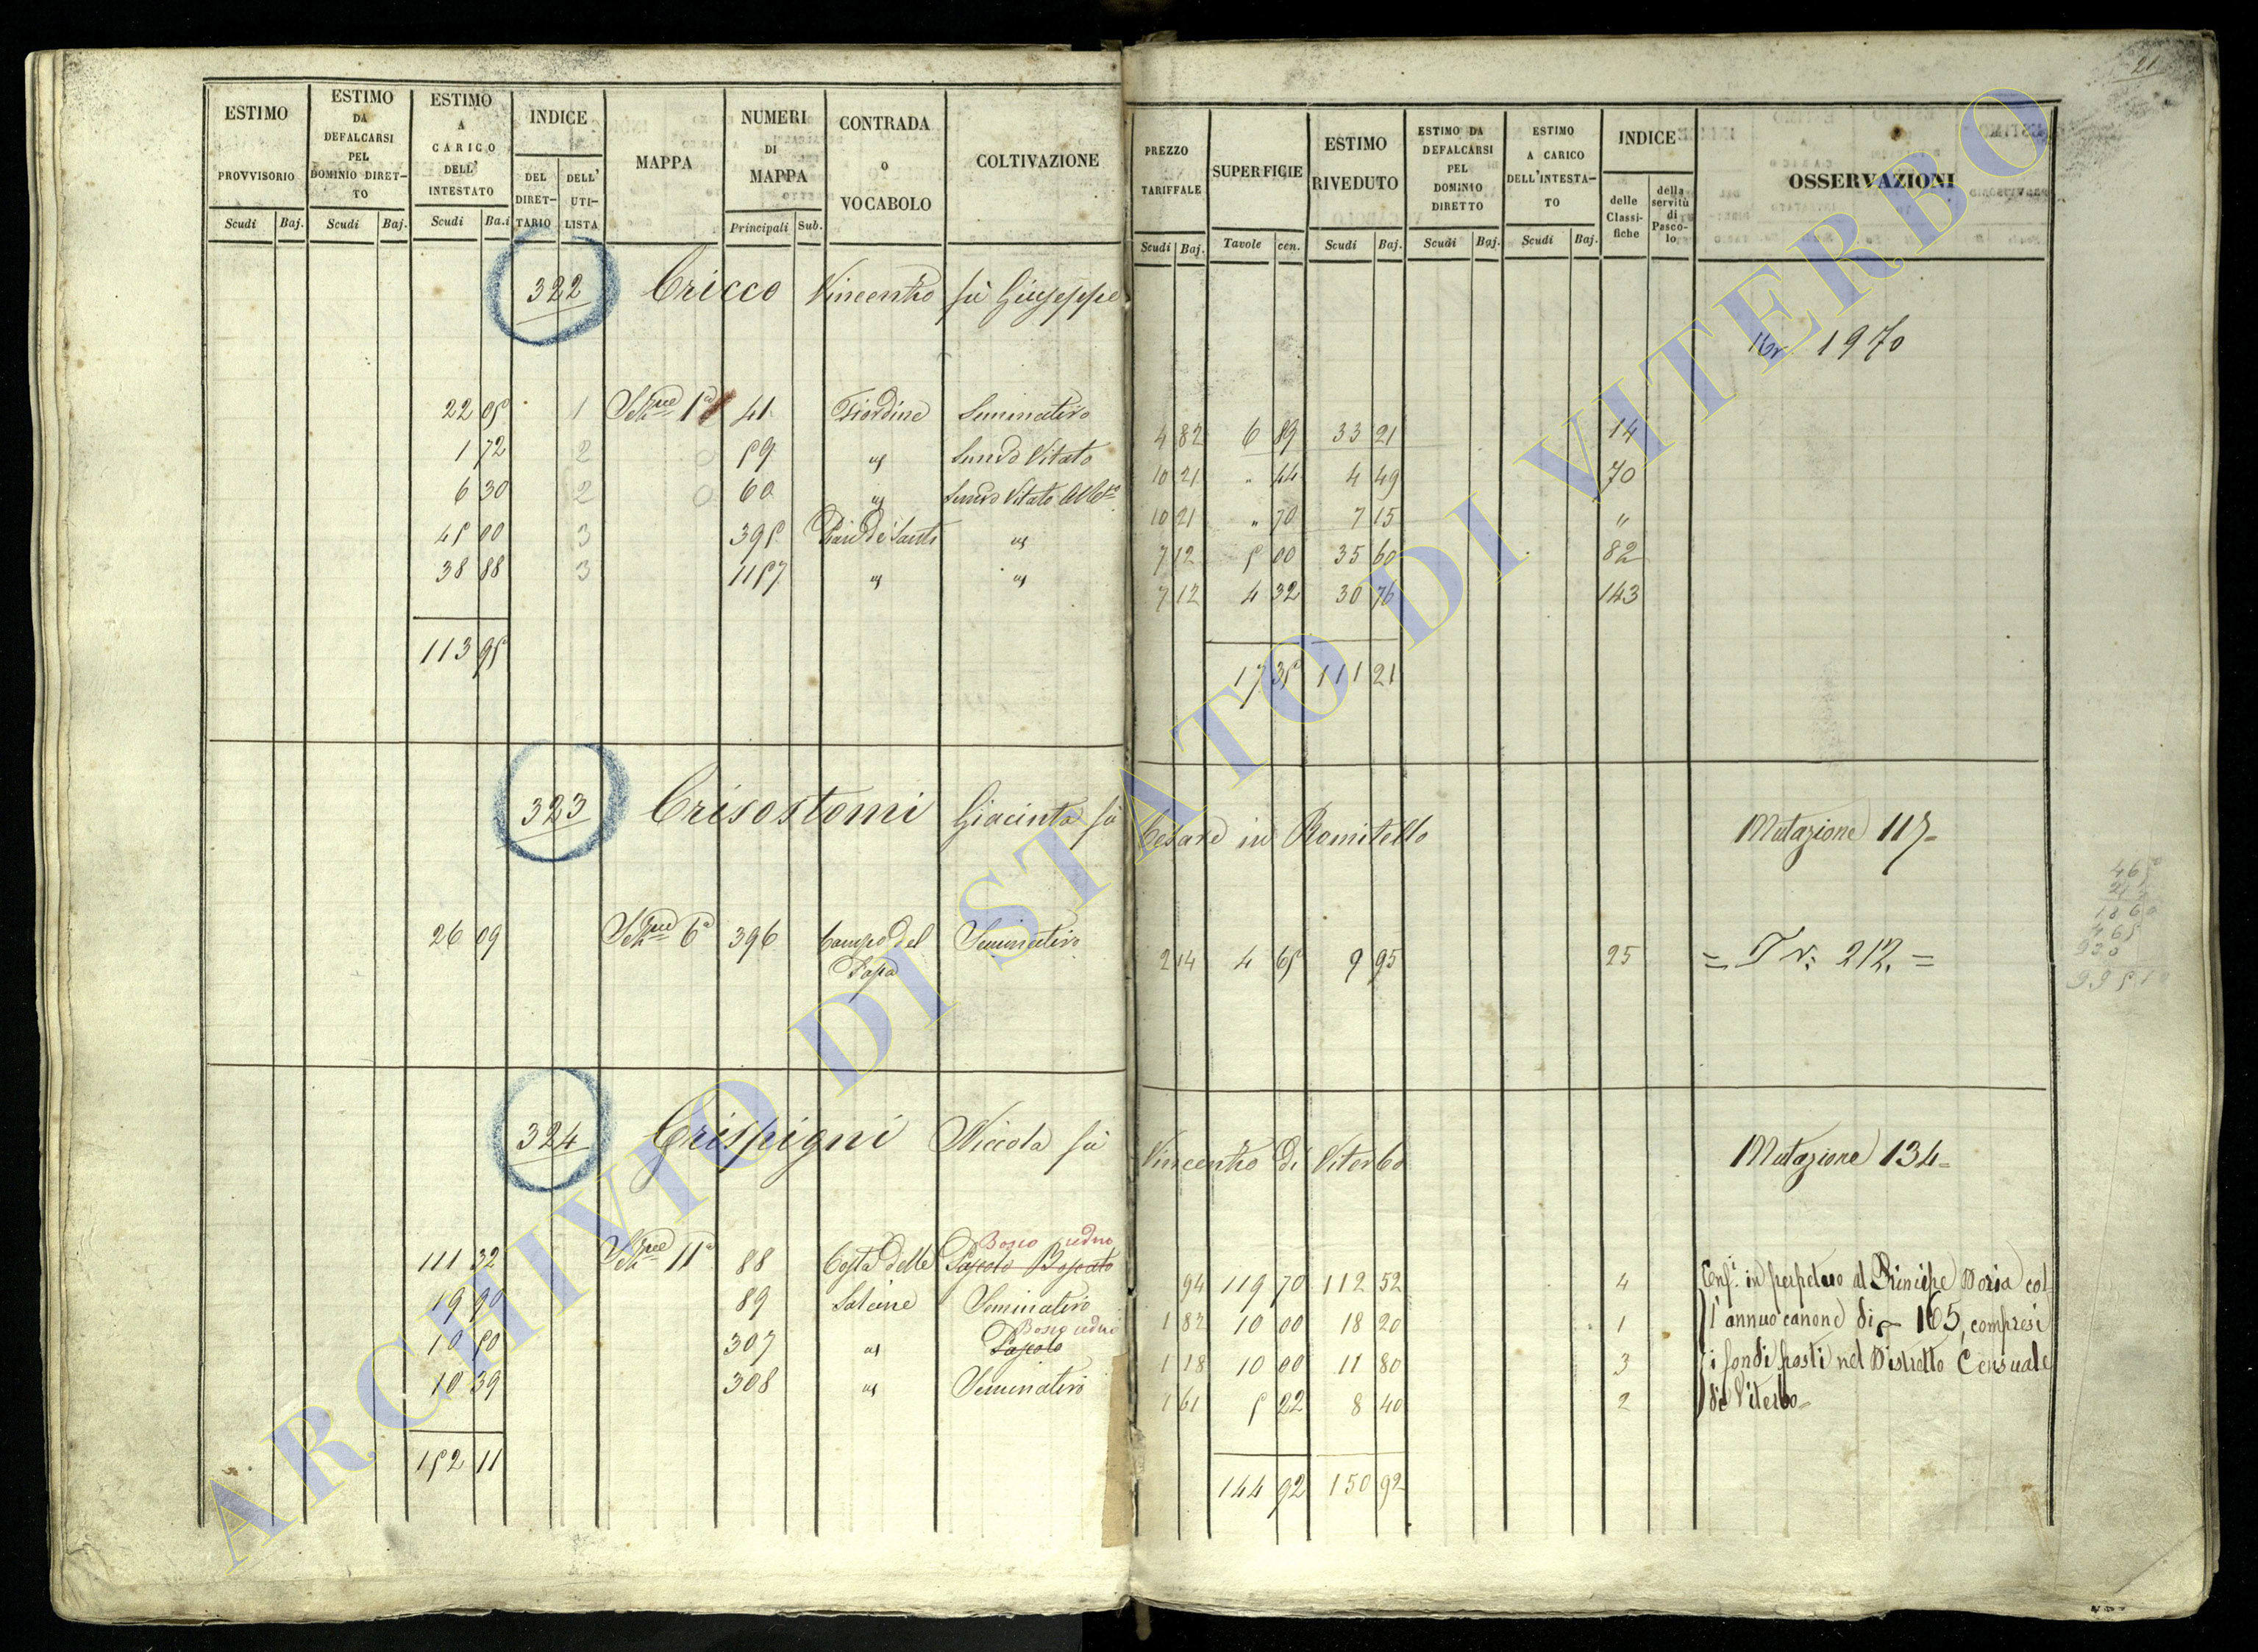 21
ESTIMO PROVVISORIO Scudi Baj.
ESTIMO DA DEFALCARSI PEL DOMINIO DIRET-TO Scudi Baj.
ESTIMO A CARICO DELL' INTESTATO Scudi Ba.i
INDICE DEL DIRET-TARIO DELL' UTI-LISTA
MAPPA
NUMERI DI MAPPA Principali Sub.
CONTRADA O VOCABOLO
COLTIVAZIONE
PREZZO TARIFFALE Scudi Baj.
SUPERFICIE Tavole cen.
ESTIMO RIVEDUTO Scudi Baj.
ESTIMO DA DEFALCARSI PEL DOMINIO DIRETTO Scudi Baj.
ESTIMO A CARICO DELL'INTESTA-TO Scudi Baj.
INDICE delle Classi-fiche della servitù di Pasco-lo
OSSERVAZIONI
322 Cricco Vincenzo fù Giuseppe
1970
22 05 1 Sezne 1a 41 Fiordine Seminativo 4 82 6 89 33 21 14
1 72 2 59 " Semvo Vitato 10 21 " 44 4 49 70
6 30 2 60 " Semvo Vitato 10 21 " 70 7 15 "
45 00 3 395 Pian de Santi " 7 12 5 00 35 60 82
38 88 3 1157 " " 7 12 4 32 30 76 143
113 95 17 35 111 21
323 Crisostomi Giacinta fù Cesare in Romitello Mutazione 117
26 09 Sezne 6a 396 Campo del Papa Seminativo 2 14 4 65 9 95 25 = T N: 212. =
465
1860
465
324 Crispigni Niccola fù Vincenzo di Viterbo Mutazione 134
111 32 Sezne 11a 88 Costa delle Pascolo Boscato Bosco ceduo 94 119 70 112 52 4
19 90 89 Salcine Seminativo 1 82 10 00 18 20 1
10 50 307 " Pascolo Bosco ceduo 1 18 10 00 11 80 3
10 39 308 " Seminativo 1 61 5 22 8 40 2
152 11 144 92 150 92
in perpetuo al Principe Doria col
l'annuo canone di 165, compresi
i fondi posti nel Distretto Censuale
di Viterbo
ARCHIVIO DI STATO DI VITERBO